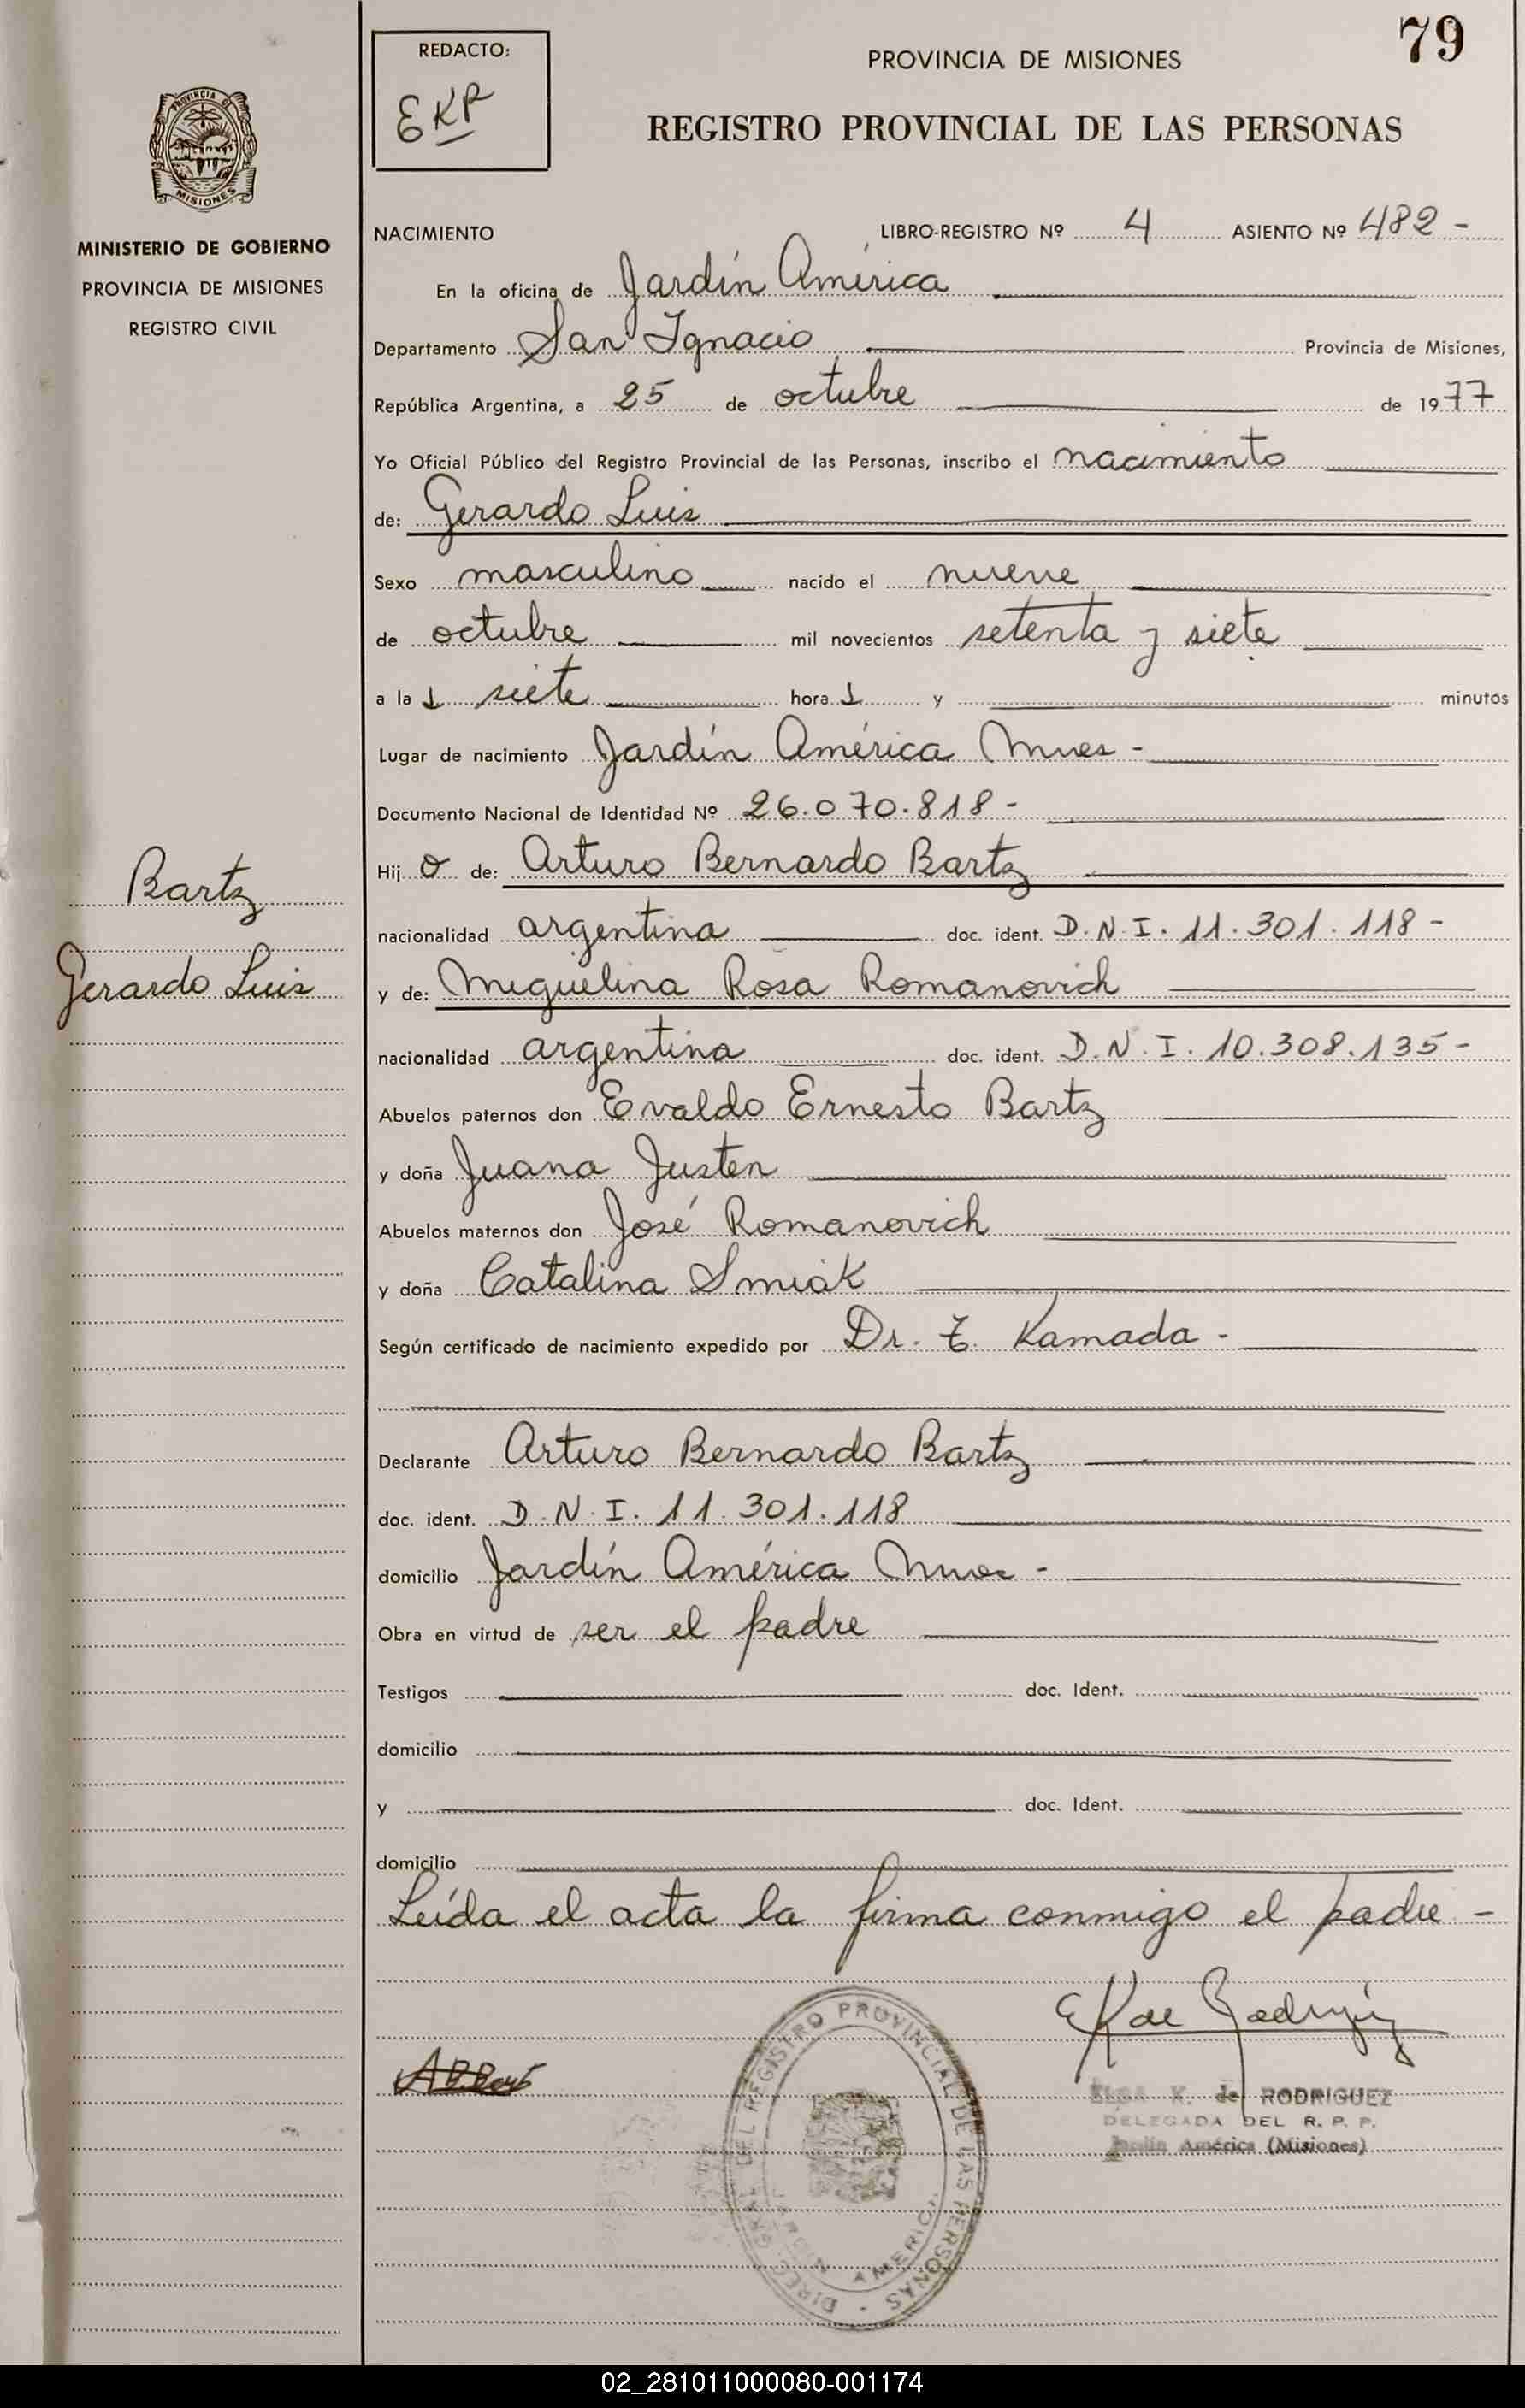 79
REDACTO:
EKR
PROVINCIA DE MISIONES
REGISTRO PROVINCIAL DE LAS PERSONAS
PROVINCIA DE
MISIONES
MINISTERIO DE GOBIERNO
PROVINCIA DE MISIONES
REGISTRO CIVIL
NACIMIENTO LIBRO-REGISTRO Nº 4 ASIENTO Nº 482 -
En la oficina de Jardín América
Departamento San Ignacio Provincia de Misiones,
República Argentina, a 25 de octubre de 1977
Yo Oficial Público del Registro Provincial de las Personas, inscribo el nacimiento
de: Gerardo Luis
Sexo masculino nacido el nueve
de octubre mil novecientos setenta y siete
a la s siete hora s y minutos
Lugar de nacimiento Jardín América Mnes -
Documento Nacional de Identidad Nº 26.070.818 -
Hij o de: Arturo Bernardo Bartz
Bartz
nacionalidad argentina doc. ident. D.N.I. 11.301.118 -
Gerardo Luis
y de: Miguelina Rosa Romanovich
nacionalidad argentina doc. ident. D.N.I. 10.308.135 -
Abuelos paternos don Evaldo Ernesto Bartz
y doña Juana Justen
Abuelos maternos don José Romanovich
y doña Catalina Smiak
Según certificado de nacimiento expedido por Dr. T. Kamada -
Declarante Arturo Bernardo Bartz
doc. ident. D.N.I. 11.301.118
domicilio Jardín América Mnes -
Obra en virtud de ser el padre
Testigos doc. Ident.
domicilio
y doc. Ident.
domicilio
Leída el acta la firma conmigo el padre -
EK de Rodríguez
ELSA K. de RODRIGUEZ
DELEGADA DEL R. P. P.
Jardín América (Misiones)
DIREC. GRAL. DEL REGISTRO PROVINCIAL DE LAS PERSONAS -
JARDIN AMERICA
02_281011000080-001174